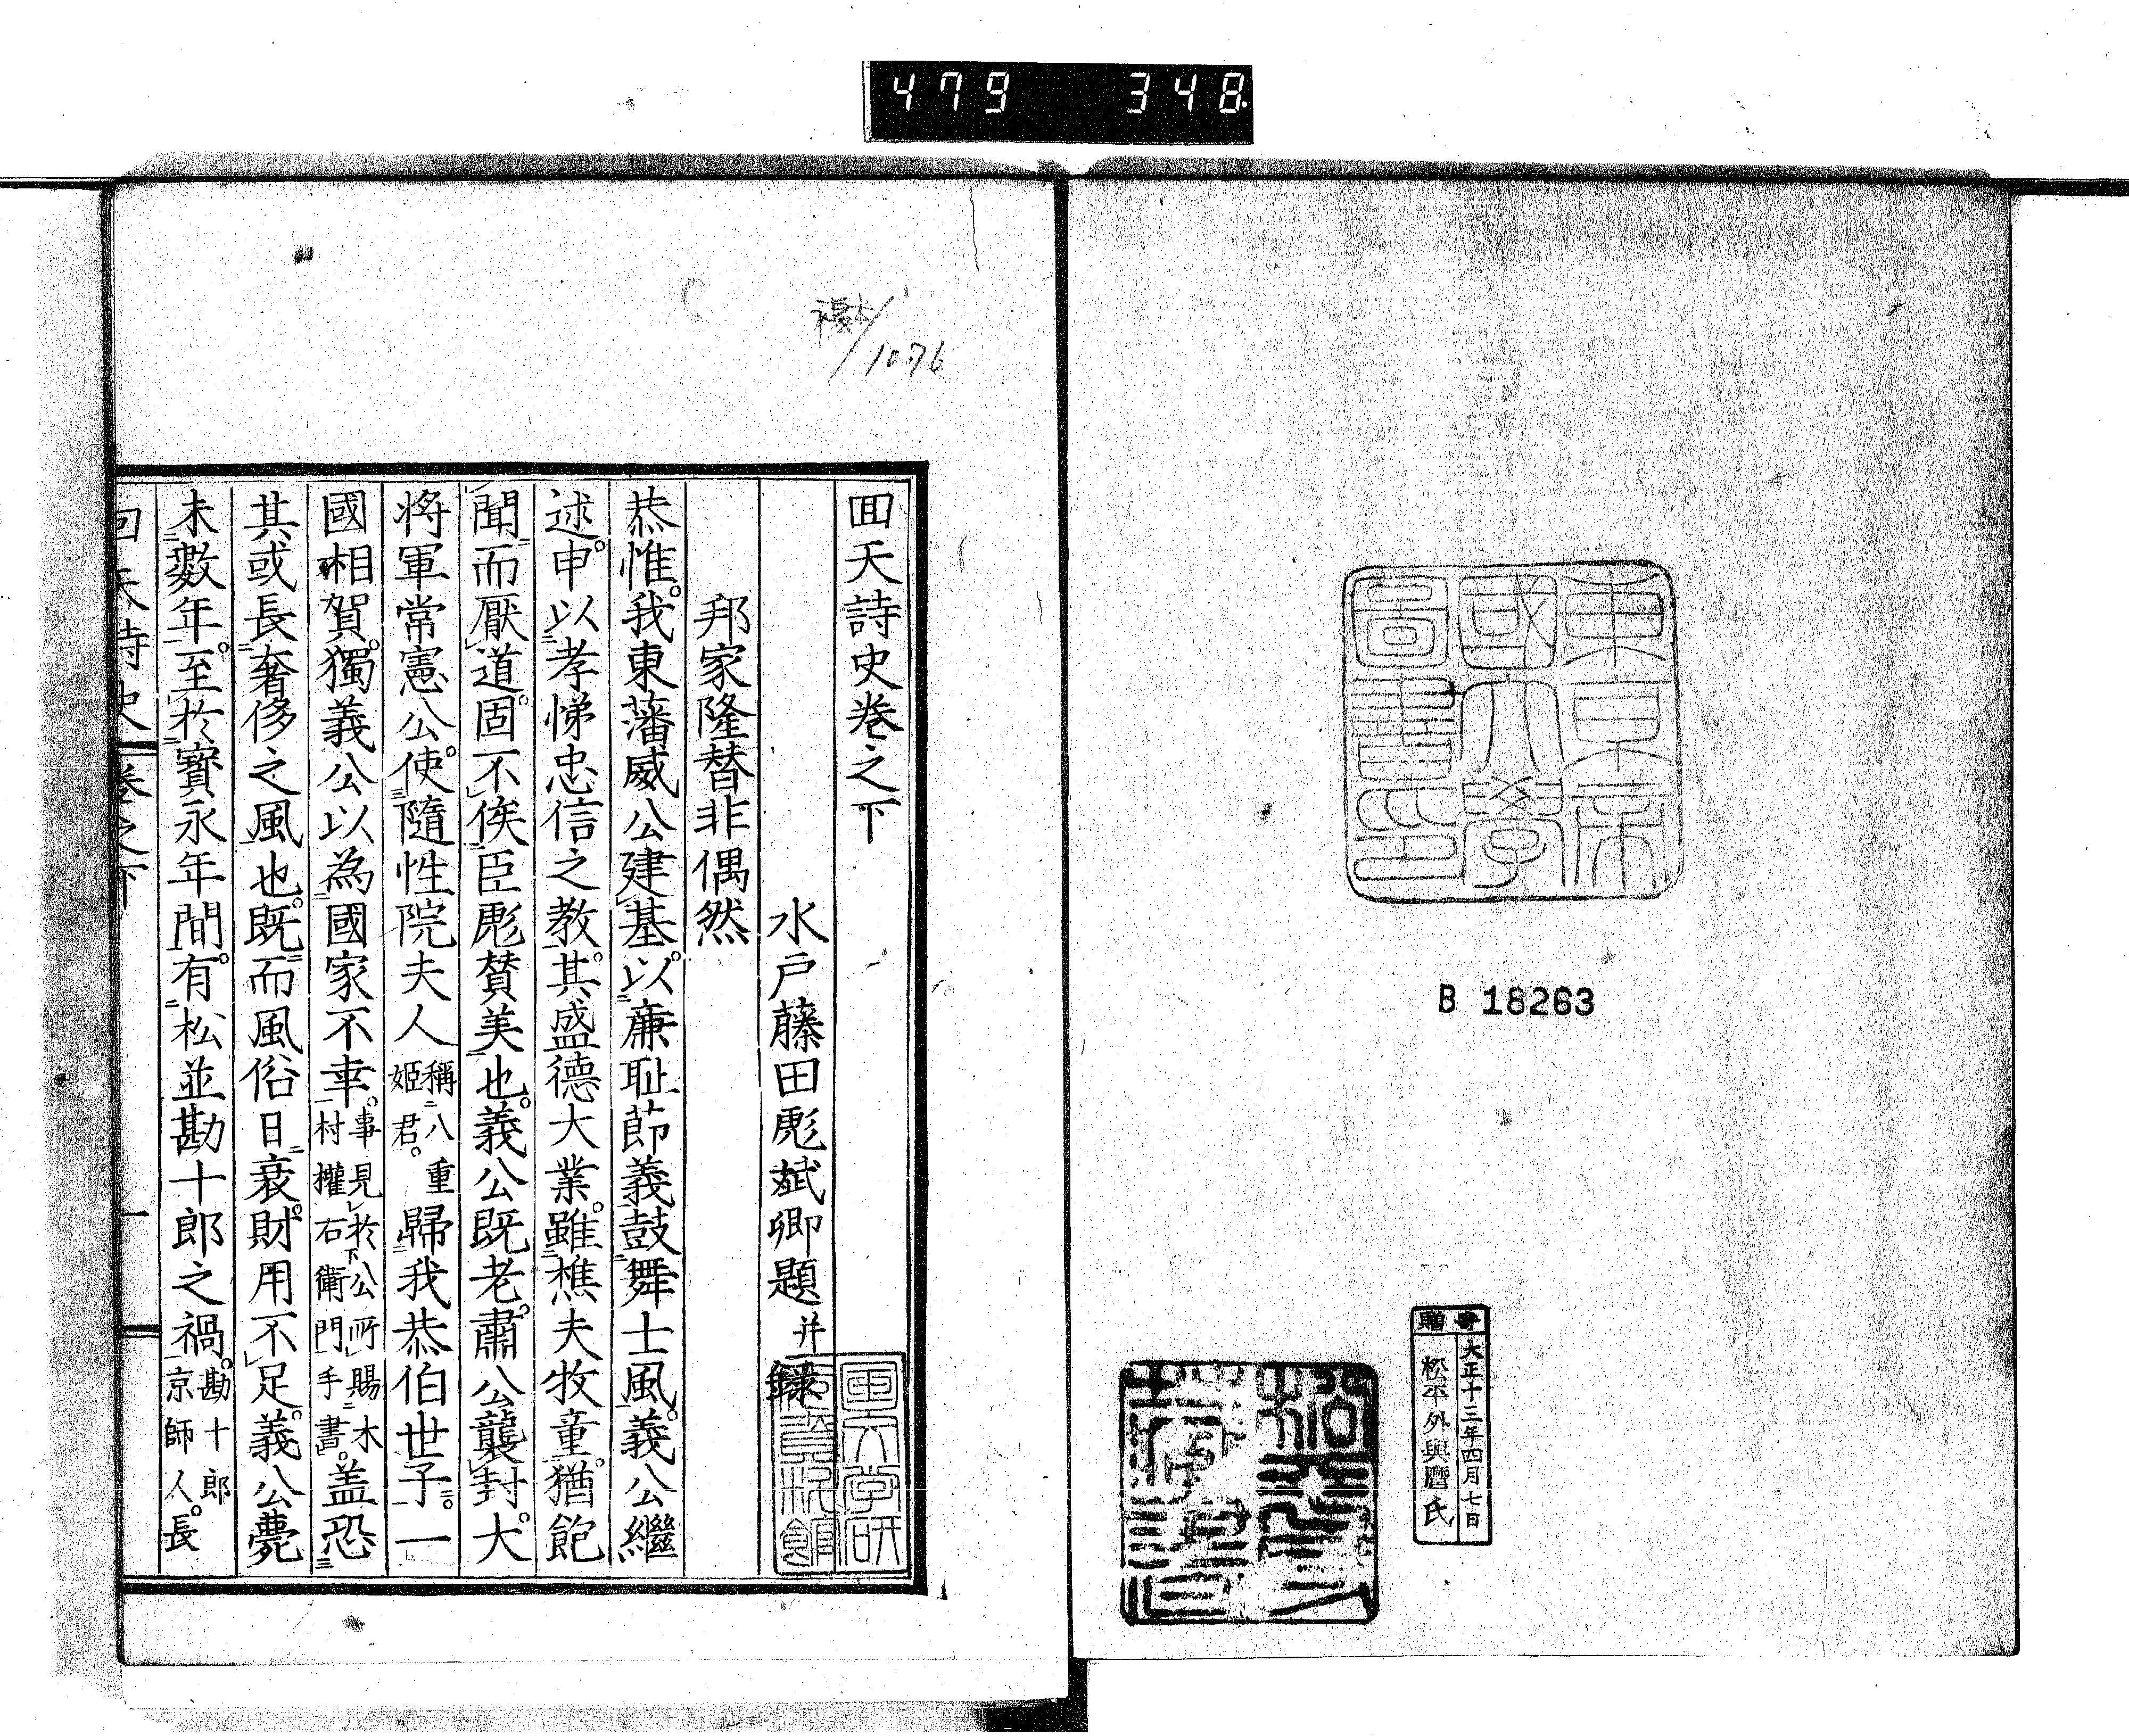 479 348
東京帝
國大學
圖書印
B 18263
寄贈
大正十三年四月七日
松平外與麿氏
1076
回天詩史巻之下
水戸藤田彪斌卿題并録
邦家隆替非偶然
恭惟。我東藩威公建基。以廉耻節義鼓舞士風。義公繼
述。申以孝悌忠信之教。其盛德大業。雖樵夫牧童。猶飽
聞而厭道。固不俟臣彪賛美也。義公既老。肅公襲封。大
将軍常憲公。使隨性院夫人稱八重姬君。歸我恭伯世子。一
國相賀。獨義公以為國家不幸。事見於公所賜木村權右衛門手書。盖恐
其或長奢侈之風也。既而風俗日衰。財用不足。義公薨
未數年。至於寳永年間。有松並勘十郎之禍。勘十郎京師人。長
回天詩史 巻之下 一